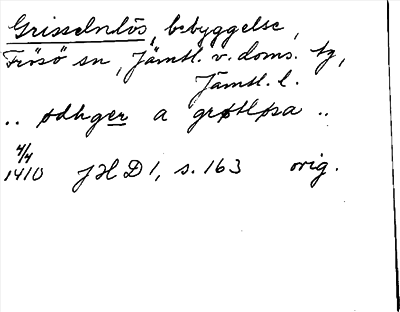 Grisselnlös, bebyggelse,
Frösö sn, Jämtl. v. doms. tg,
Jämtl. l.
.. ødhger a grøtløsa ..
4/4
1410 JHD 1, s. 163 orig.